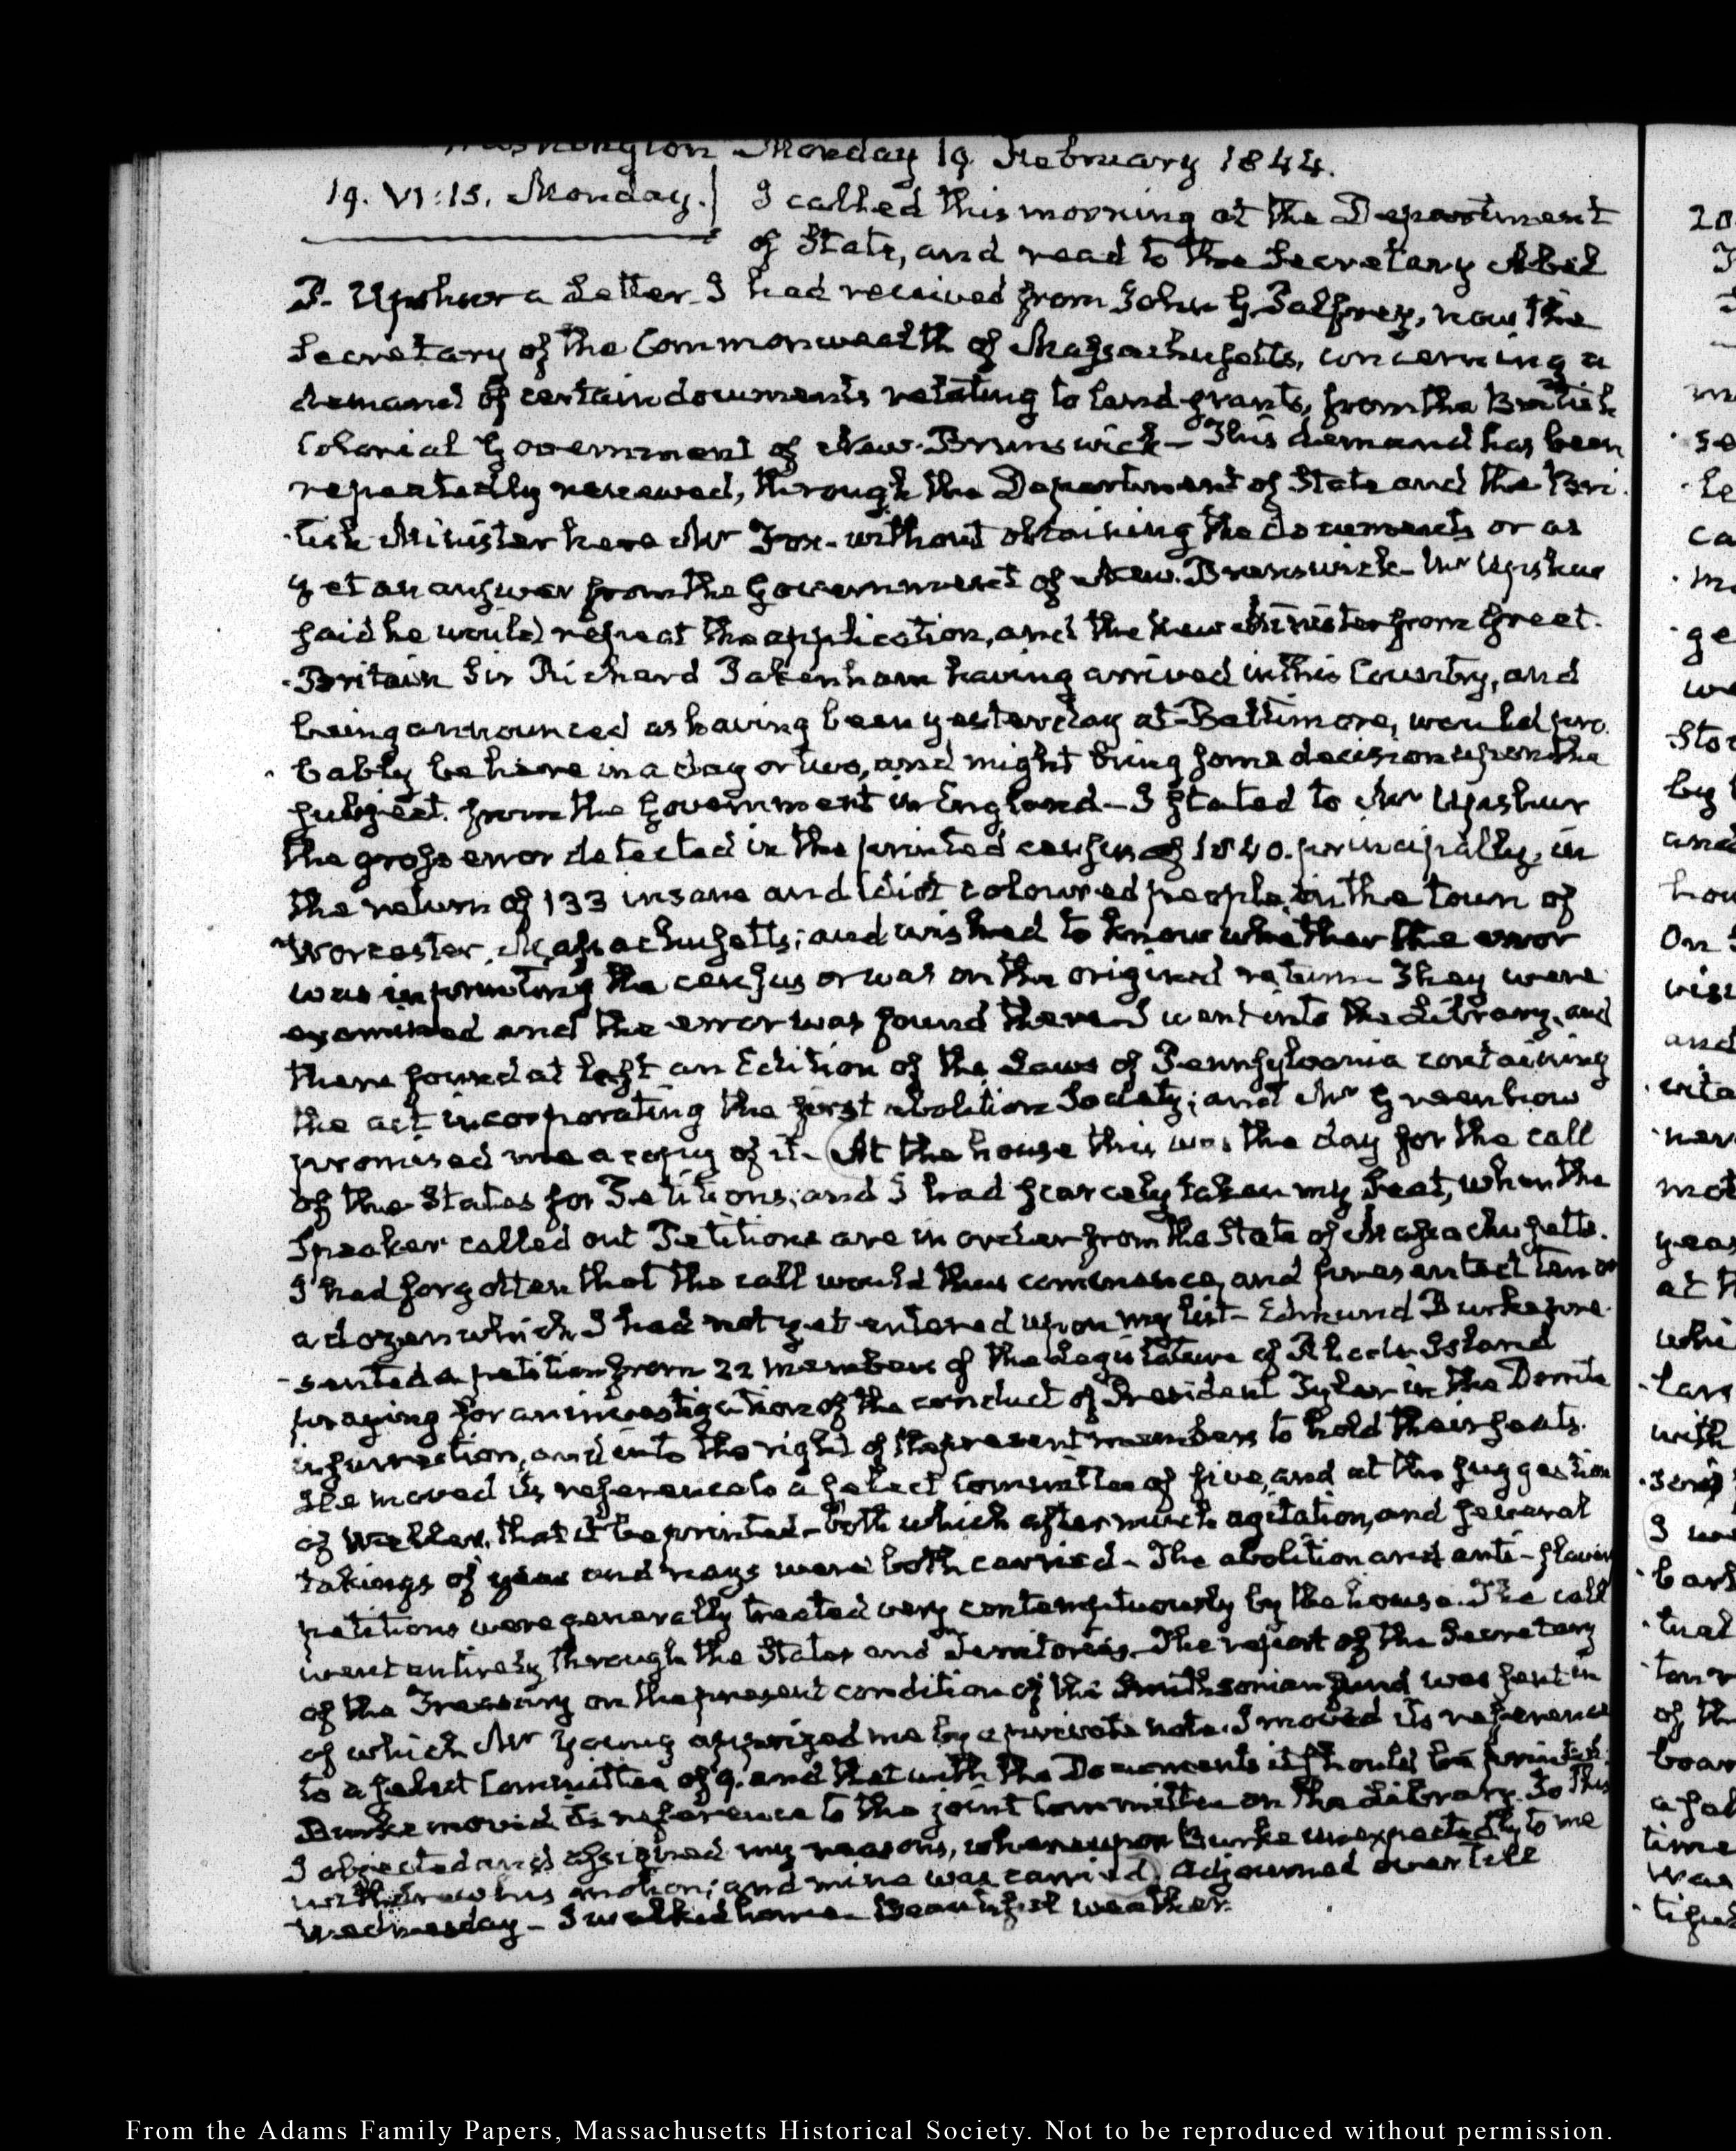 Washington Monday 19. February 1844.
19. VI:15. Monday. I called this morning at the Department
of State, and read to the Secretary Abel
P. Upshur a Letter I had received from John G. Palfrey, now the
Secretary of the Commonwealth of Massachusetts, concerning a
demand of certain documents relating to land-grants, from the British
Colonial Government of New-Brunswick— This demand has been
repeatedly renewed, through the Department of State and the Bri-
tish Minister here Mr Fox- without obtaining the documents or as
yet an answer from the Government of New-Brunswick- Mr Upshur
said he would repeat the application, and the new Minister from Great-
Britain Sir Richard Pakenham having arrived in this Country, and
being announced as having been yesterday at Baltimore, would pro-
bably be here in a day or two, and might bring some decision upon the
subject from the Government in England— I stated to Mr Upshur
the gross error detected in the printed census of 1840. principally, in
the return of 133 insane and Idiot coloured people, in the town of
Worcester, Massachusetts; and wished to know whether the error
was in printing the census or was on the original return They were
examined and the error was found there I went into the Library, and
there found at last an Edition of the Laws of Pennsylvania containing
the act incorporating the first abolition Society; and Mr Greenhow
promised me a copy of it- At the house this was the day for the call
of the States for Petitions; and I had scarcely taken my seat, when the
Speaker called out Petitions are in order from the State of Massachusetts.
I had forgotten that the call would thus commence, and presented ten or
a dozen which I had not yet entered upon my list- Edmund Burke pre-
sented a petition from 22 members of the Legislature of Rhode-Island
praying for an investigation of the conduct of President Tyler in the Dorrite
insurrection, and into the right of the present members to hold their seats.
He moved its reference to a select Committee of five, and at the suggestion
of Weller, that it be printed- both which after much agitation, and several
takings of yeas and nays were both carried- The abolition and anti-slavery
petitions were generally treated very contemptuously by the house. The call
went entirely through the States and Territories. The report of the Secretary
of the Treasury on the present condition of the Smithsonian fund was sent in
of which Mr Young apprized me by a private note. I moved its reference
to a select Committee of 9. and that with the Documents it should be printed.
Burke moved its reference to the joint Committee on the Library. To this
I objected and assigned my reasons, whereupon Burke unexpectedly to me
withdrew his motion; and mine was carried. Adjourned over till
Wednesday- I walked home- Beautiful weather.
20
se
le
ca
ge
we
by
and
how
On
and
at
with
I
of th
board
time
was
From the Adams Family Papers, Massachusetts Historical Society. Not to be reproduced without permission.